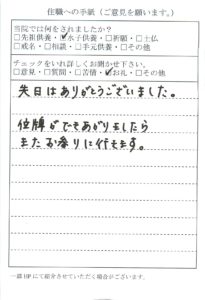 住職への手紙（ご意見を願います。）
当院では何をされましたか？
□先祖供養・☑水子供養・□祈願・□土仏
□戒名・□相談・□手元供養・□その他
チェックをいれ詳しくお聞かせ下さい。
□意見・□質問・□苦情・☑お礼・□その他
先日はありがとうございました。
位牌ができあがりましたら
またお参りに行きます。
一部HPにて紹介させていただく場合がございます。